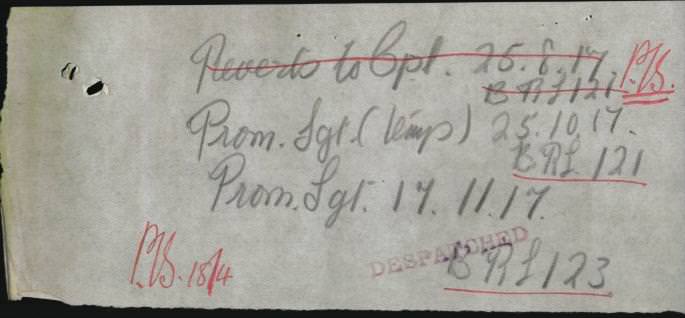 Reverts to Cpl. 25.8.17 P.B.
BRL 121
Prom. Sgt. (temp) 25.10.17.
BRL 121
Prom. Sgt. 17.11.17.
DESPATCHED
P.B. 18/4
BRL 123